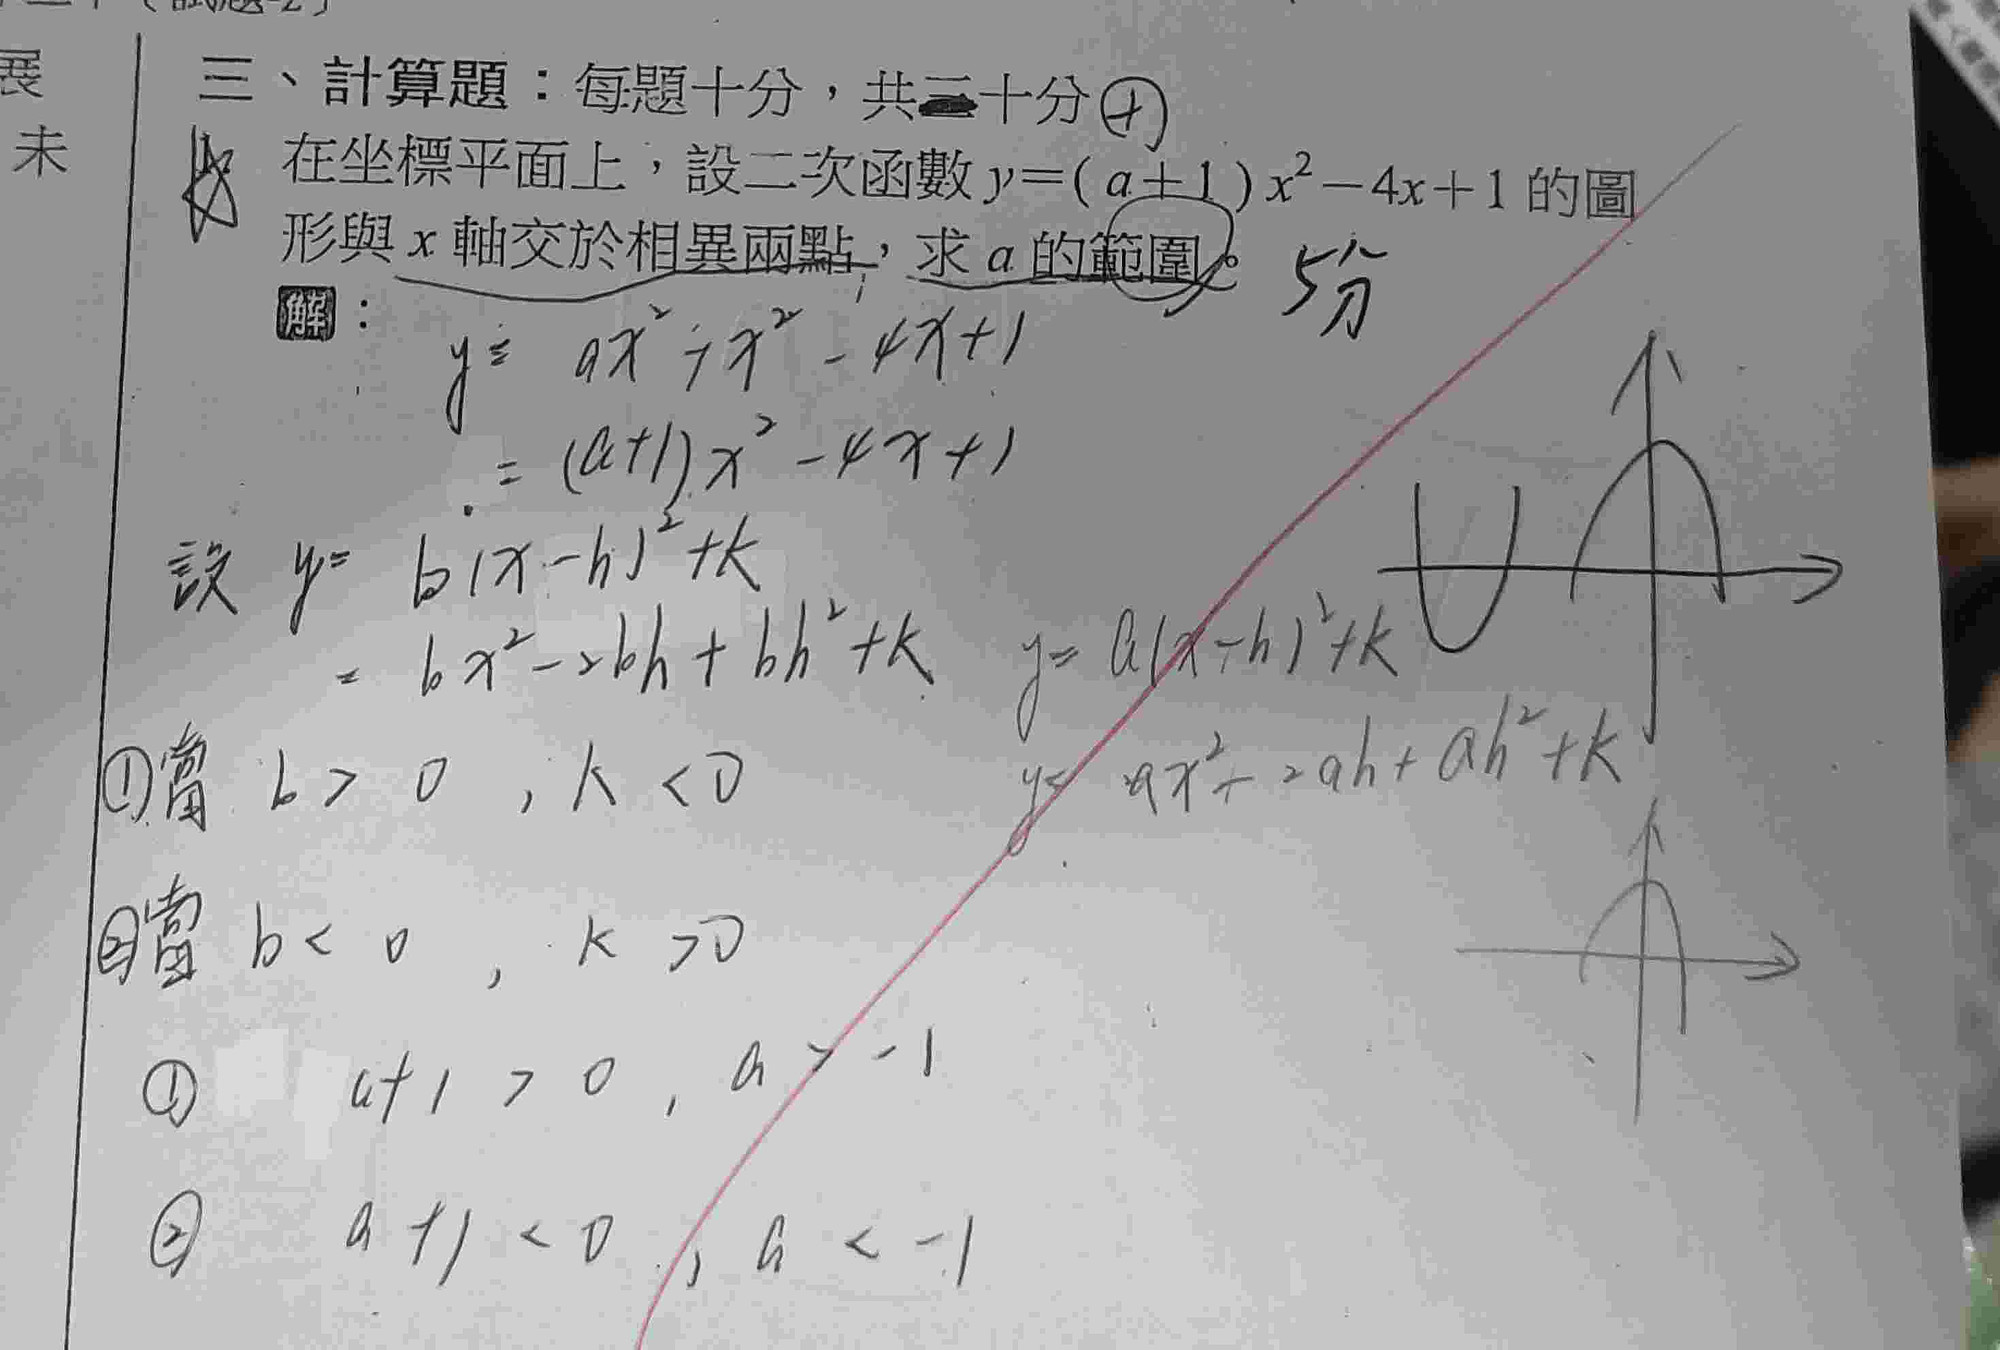 展
未
三、計算題：每題十分，共三十分 +
在坐標平面上，設二次函數 y＝( a＋1 ) x²－4x＋1 的圖
形與 x 軸交於相異兩點，求 a 的範圍。 5分
解：
y= ax²+x²-4x+1
= (a+1)x²-4x+1
設 y= b(x-h)²+k
= bx²-2bh+bh²+k
y= a(x-h)²+k
y= ax²-2ah+ah²+k
①當 b>0, k<0
②當 b<0, k>0
① a+1>0, a>-1
② a+1<0, a<-1